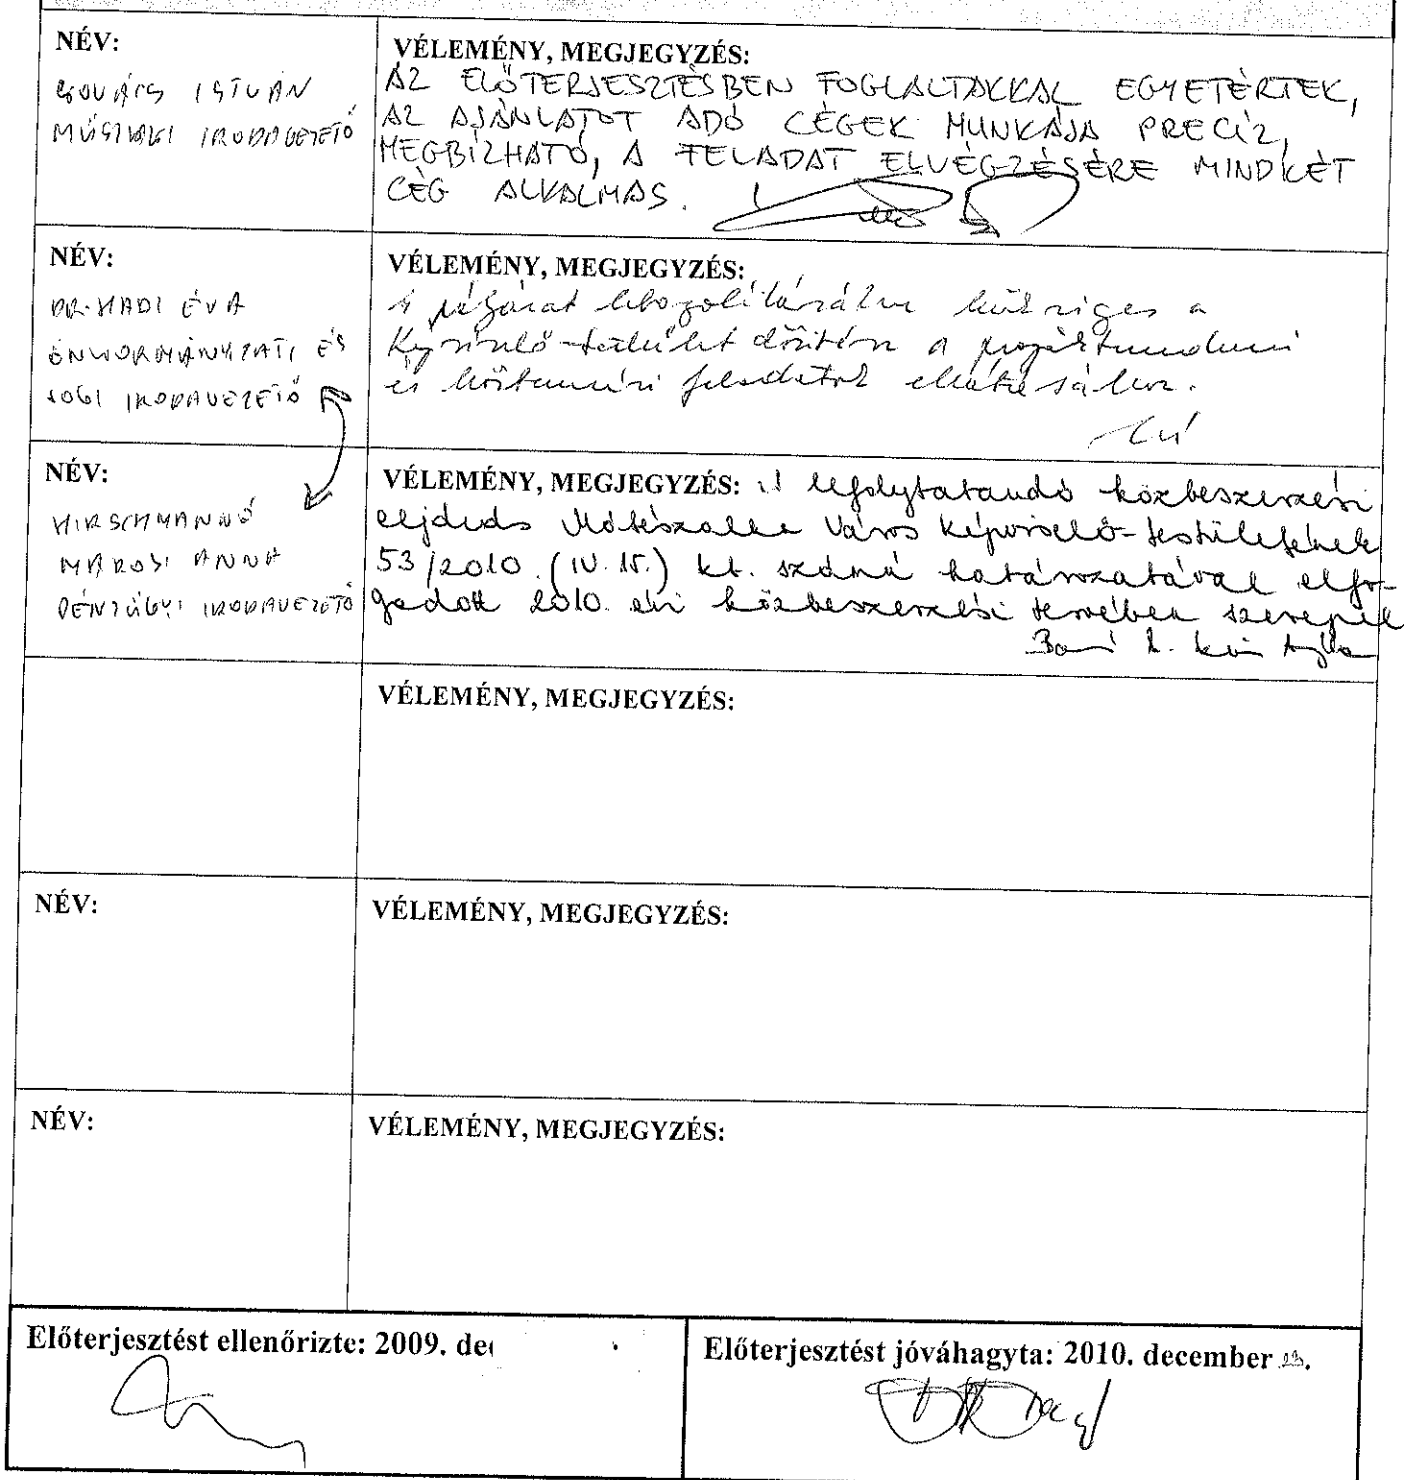 NÉV:
KOVÁCS ISTVÁN
MŰSZAKI IRODAVEZETŐ
VÉLEMÉNY, MEGJEGYZÉS:
AZ ELŐTERJESZTÉSBEN FOGLALTAKKAL EGYETÉRTEK,
AZ AJÁNLATOT ADÓ CÉGEK MUNKÁJA PRECÍZ,
MEGBÍZHATÓ, A FELADAT ELVÉGZÉSÉRE MINDKÉT
CÉG ALKALMAS.
NÉV:
DR. HADI ÉVA
ÖNKORMÁNYZATI ÉS
JOGI IRODAVEZETŐ
VÉLEMÉNY, MEGJEGYZÉS:
A pályázat szükséges a
Képviselő-testület döntése a
és feladatok ellátásához.
NÉV:
HIRSCHMANNÉ
MAROSI ANNA
PÉNZÜGYI IRODAVEZETŐ
VÉLEMÉNY, MEGJEGYZÉS: A lefolytatandó közbeszerzési
eljárás Mátészalka Város Képviselő-testületének
53/2010. (IV. 15.) kt. számú határozatával elfo-
gadott 2010. évi közbeszerzési tervében szerepel
VÉLEMÉNY, MEGJEGYZÉS:
NÉV:
VÉLEMÉNY, MEGJEGYZÉS:
NÉV:
VÉLEMÉNY, MEGJEGYZÉS:
Előterjesztést ellenőrizte: 2009. de
Előterjesztést jóváhagyta: 2010. december